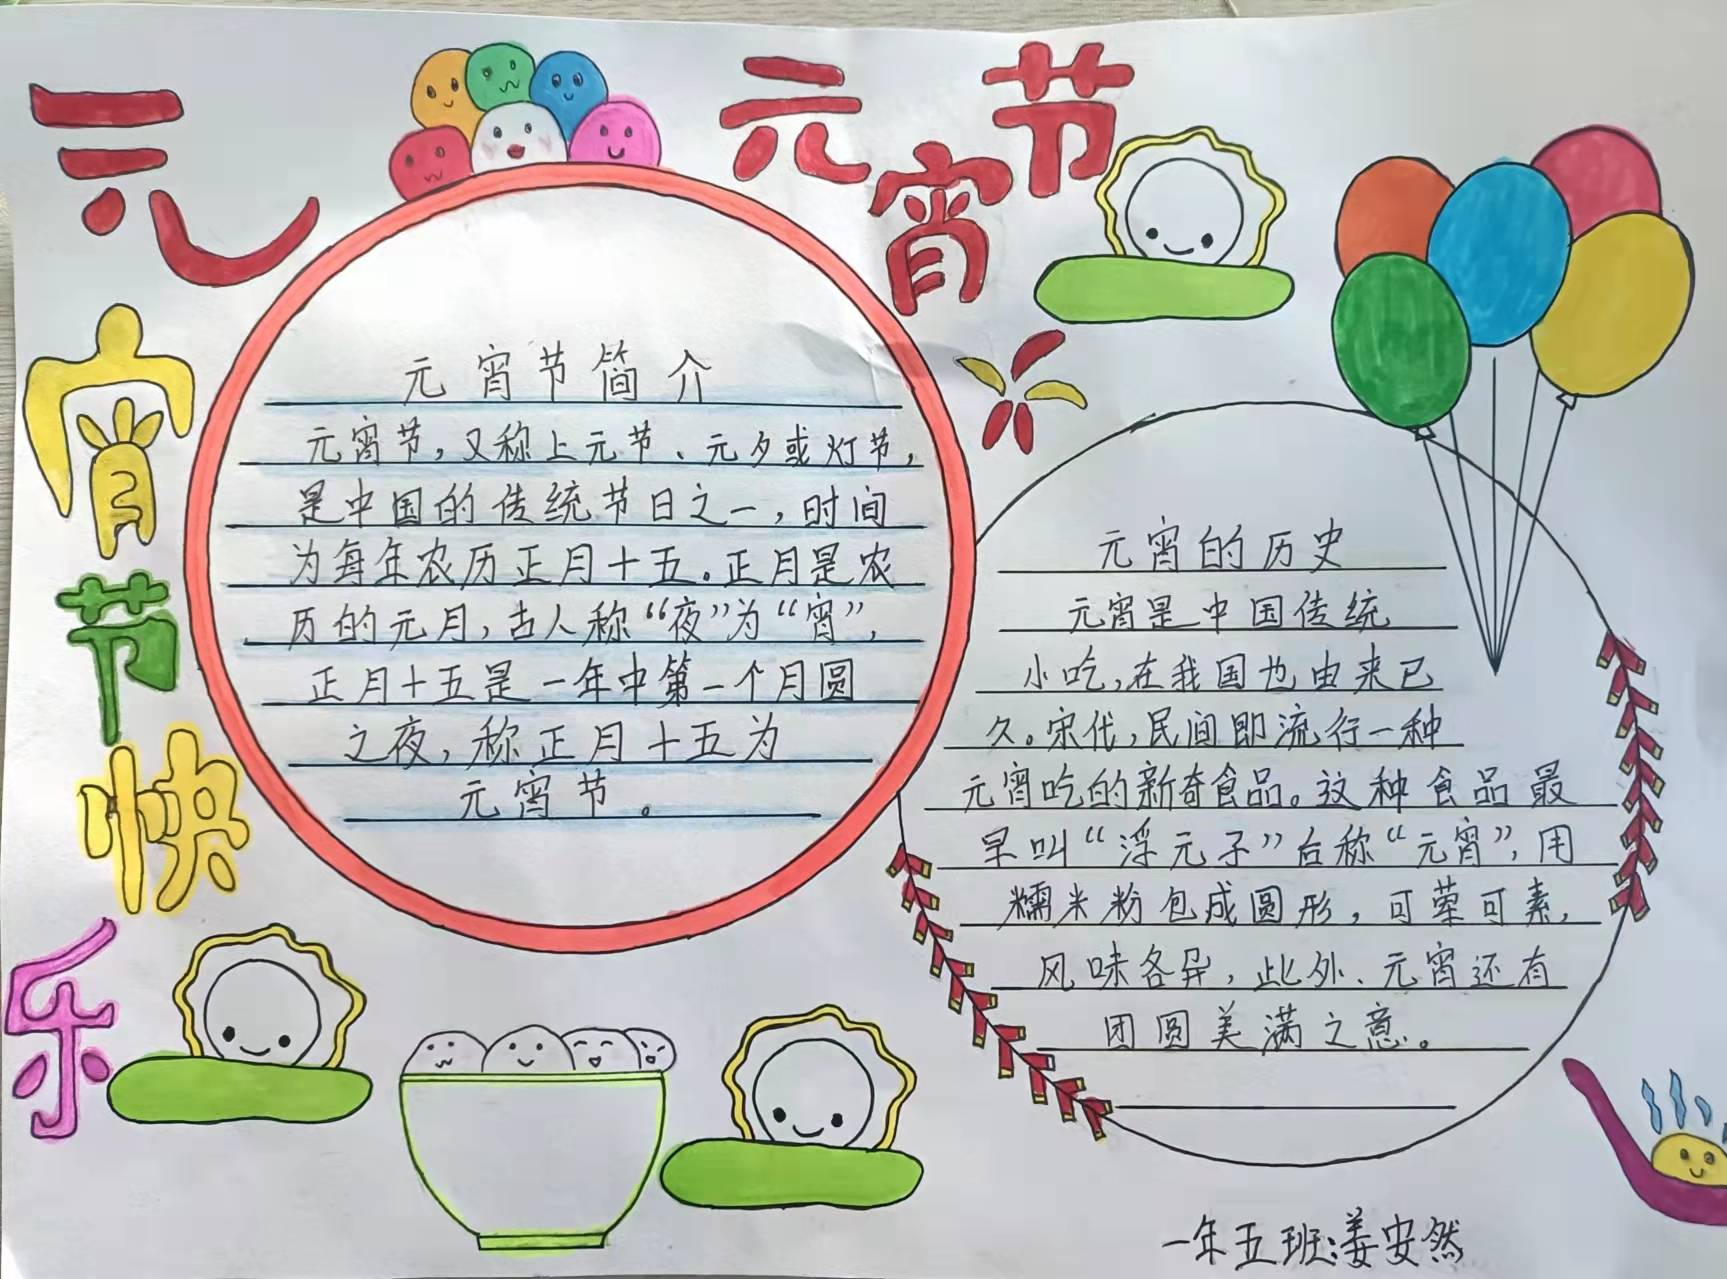 元宵节快乐
元宵节
元宵节简介
元宵节，又称上元节、元夕或灯节，
是中国的传统节日之一，时间
为每年农历正月十五。正月是农
历的元月，古人称“夜”为“宵”，
正月十五是一年中第一个月圆
之夜，称正月十五为
元宵节。
元宵的历史
元宵是中国传统
小吃，在我国也由来已
久。宋代，民间即流行一种
元宵吃的新奇食品。这种食品最
早叫“浮元子”台称“元宵”，用
糯米粉包成圆形，可荤可素，
风味各异，此外、元宵还有
团圆美满之意。
一年五班：姜安然